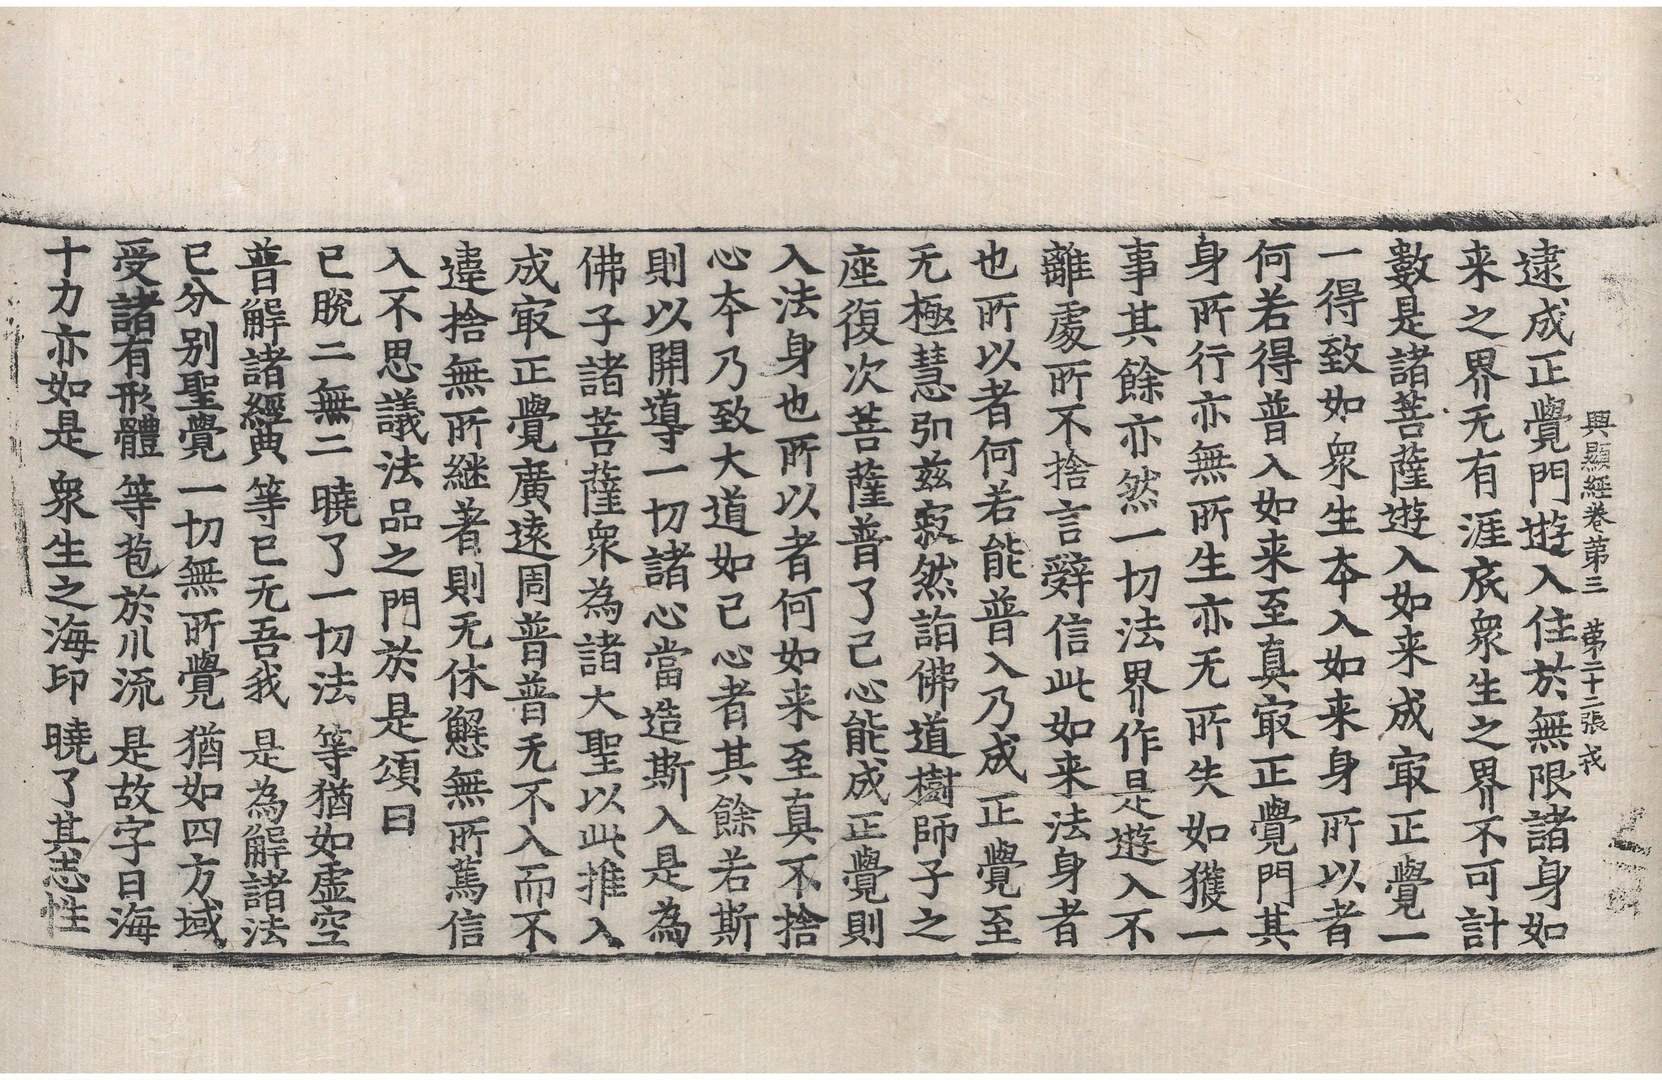 興顯經卷第三　第二十二張　戎
逮成正覺門遊入住於無限諸身如
来之界无有涯底衆生之界不可計
數是諸菩薩遊入如来成㝡正覺一
一得致如衆生本入如来身所以者
何若得普入如来至真㝡正覺門其
身所行亦無所生亦无所失如獲一
事其餘亦然一切法界作是遊入不
離處所不捨言辤信此如来法身者
也所以者何若能普入乃成正覺至
无極慧引兹寂然詣佛道樹師子之
座復次菩薩普了己心能成正覺則
入法身也所以者何如来至真不捨
心本乃致大道如已心者其餘若斯
則以開導一切諸心當造斯入是為
佛子諸菩薩衆為諸大聖以此推入
成㝡正覺廣遠周普普无不入而不
違捨無所継著則无休懈無所蔫信
入不思議法品之門於是頌曰
已脫二無二　曉了一切法　等猶如虛空
普解諸經典　等已无吾我　是為解諸法
已分别聖覺　一切無所覺　猶如四方域
受諸有形體　等苞於川流　是故字曰海
十力亦如是　衆生之海印　曉了其志性